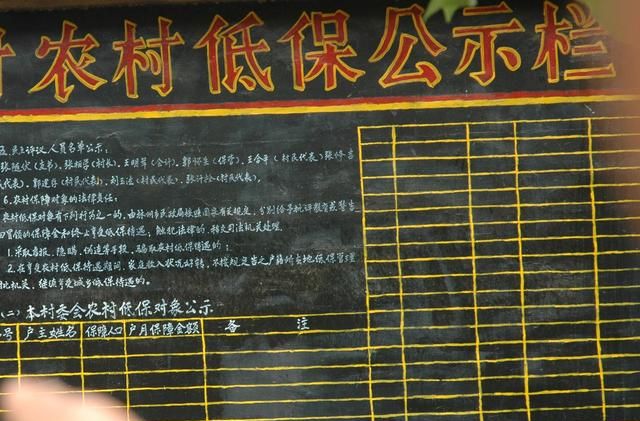 农村低保公示栏
民主评议人员名单公示:
(支书), (村长), 王明 (会计), (村民代表)
民代表), (村民代表), (村民代表), (村民代表)。
6. 农村保障对象的法律责任:
农村低保对象有下列行为之一的, 由 州市民政局根据国家有关规定, 分别给予批评教育或警告
冒领的保障金和终止享受低保待遇; 触犯法律的, 移交司法机关处理。
1. 采取虚报、隐瞒、伪造等手段, 骗取农村低保待遇的;
2. 在享受农村低保待遇期间, 家庭收入状况好转, 不按规定告之户籍所在地低保管理
机关, 继续享受 低保待遇的。
(二) 本村委会农村低保对象公示
号 户主姓名 保障人口 户月保障金额 备 注